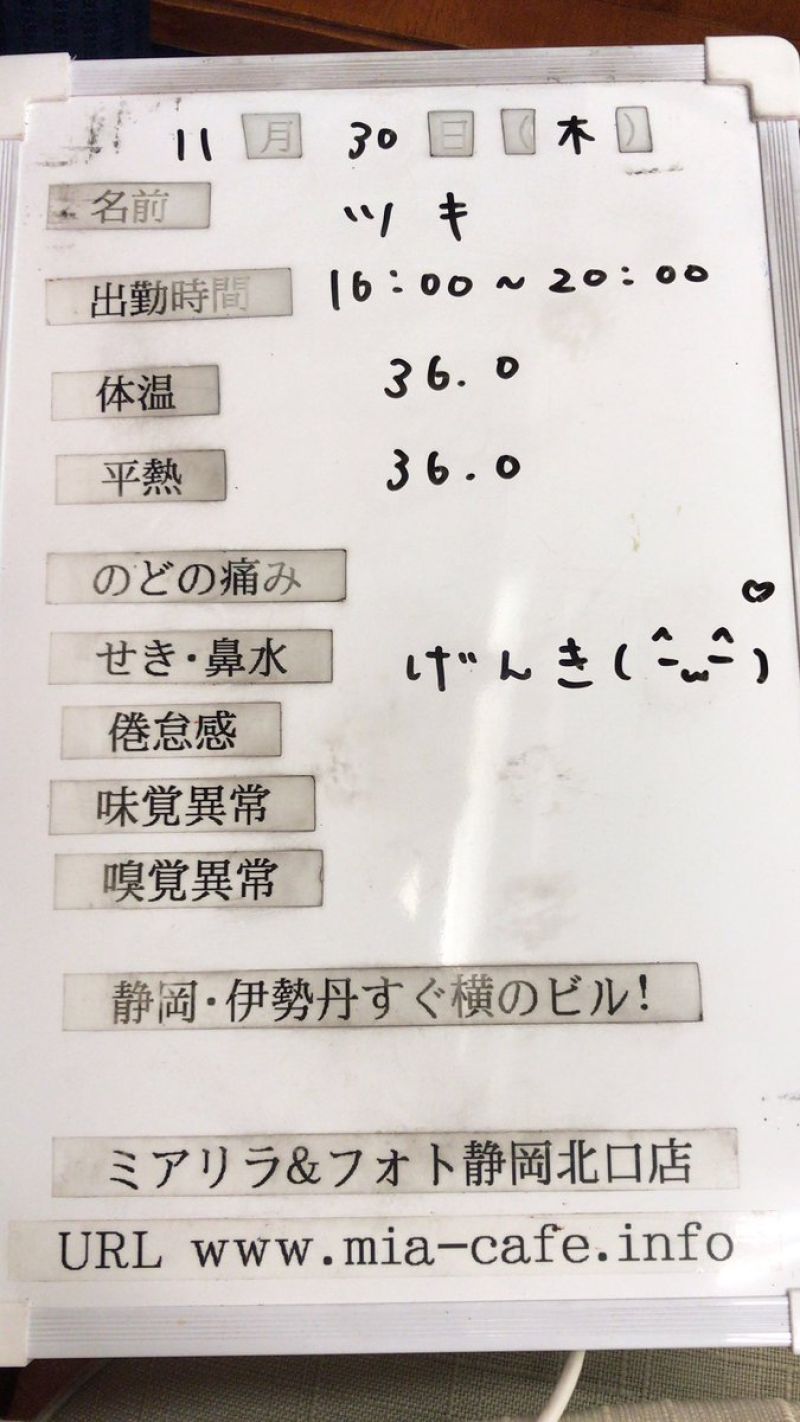 11月30日(木)
名前 ツキ
出勤時間 16:00~20:00
体温 36.0
平熱 36.0
のどの痛み
せき・鼻水 げんき(^-ω^-)♡
倦怠感
味覚異常
嗅覚異常
静岡・伊勢丹すぐ横のビル!
ミアリラ&フォト静岡北口店
URL www.mia-cafe.info